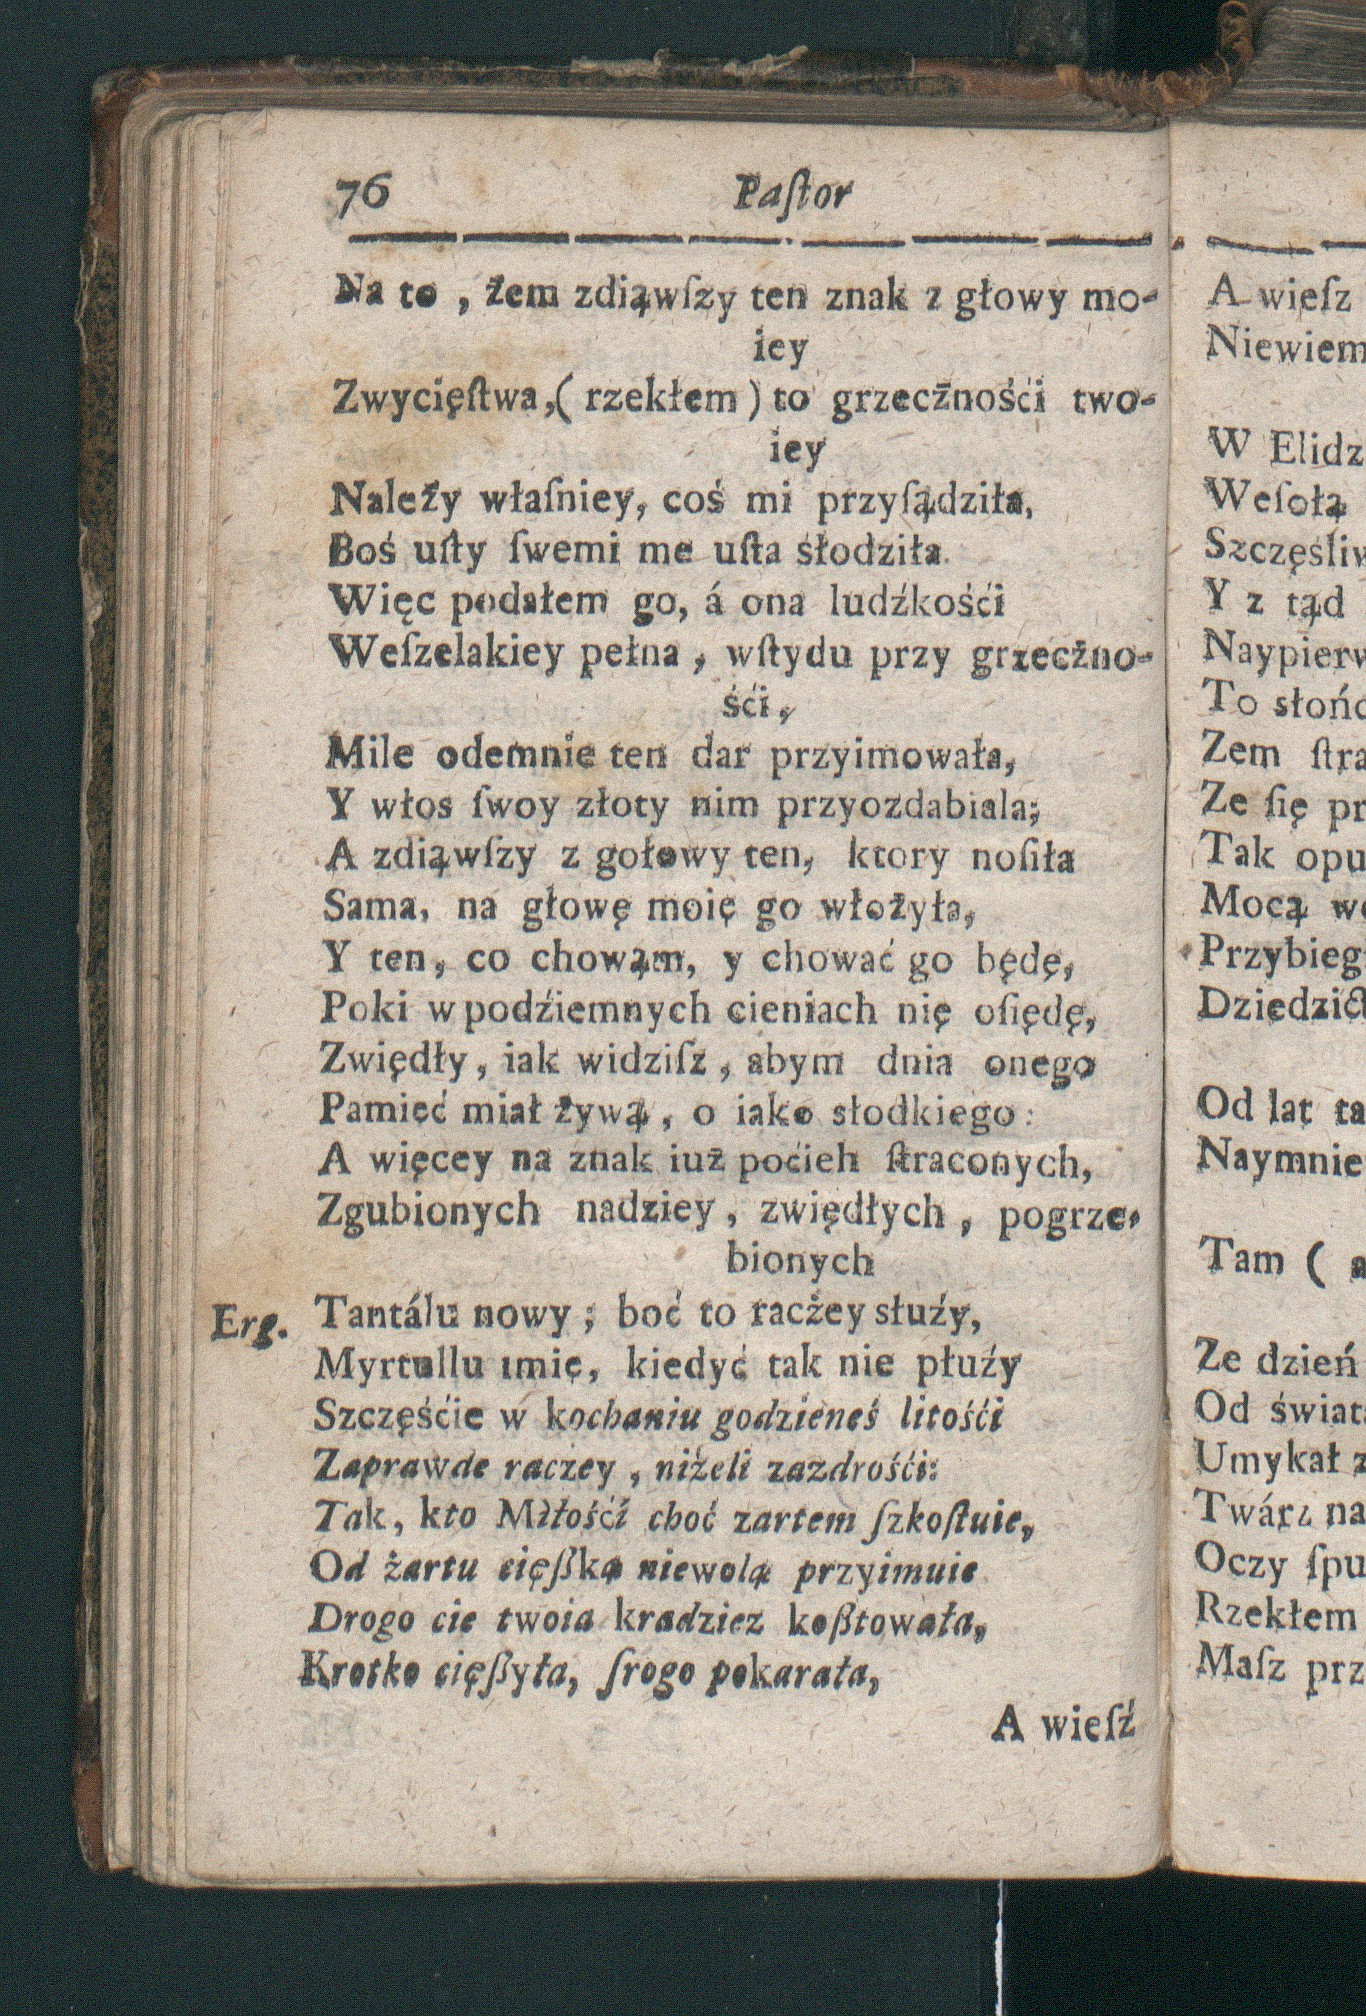 76 Paſtor
Na to , żem zdiąwſzy ten znak z głowy mo-
iey
Zwycięſtwa,( rzekłem ) to grzecżnośći two-
iey
Należy właſniey, coś mi przyſądziła,
Boś uſty ſwemi me uſta słodziła
Więc podałem go, á ona ludźkośći
Weſzelakiey pełna , wſtydu przy grzecżno-
śći,
Mile odemnie ten dar przyimowała,
Y włos ſwoy złoty nim przyozdabiala;
A zdiąwſzy z gołowy ten, ktory noſiła
Sama, na głowę moię go włożyła,
Y ten, co chowąm, y chować go będę,
Poki w podźiemnych cieniach nię oſiędę,
Zwiędły , iak widziſz , abym dnia onego
Pamięć miał żywą , o iako słodkiego :
A więcey na znak iuż poćieh ſtraconych,
Zgubionych nadziey , zwiędłych , pogrze-
bionych
Erg. Tantálu nowy ; boć to racżey służy,
Myrtullu imię, kiedyć tak nie płuźy
Szczęśćie w kochaniu godzieneś litośći
Zaprawde raczey , niżeli zazdrośći:
Tak, kto Miłośći choć zartem ſzkoſtuie,
Od żartu cięßką niewolą przyimuie
Drogo cie twoia kradziez koßtowała,
Krotko cięßyła, ſrogo pokarała,
A wieſź
A wieſz
Niewiem
W Elidz
Weſołą
Szczęśliw
Y z tąd
Naypierw
To słońc
Zem ſtra
Ze ſię pr
Tak opu
Mocą we
Przybieg
Dziedzićt
Od lat ta
Naymnie
Tam ( a
Ze dzień
Od świat
Umykał z
Twárz na
Oczy ſpu
Rzekłem
Maſz prz